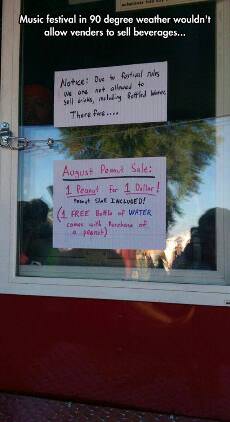 Music festival in 90 degree weather wouldn't
allow venders to sell beverages...
Notice: Due to festival rules
we are not allowed to
sell drinks, including Bottled Water.
Therefore....
August Peanut Sale:
1 Peanut For 1 Dollar!
Peanut Shell INCLUDED!
(1 FREE Bottle of WATER
comes with Purchase of
a peanut)